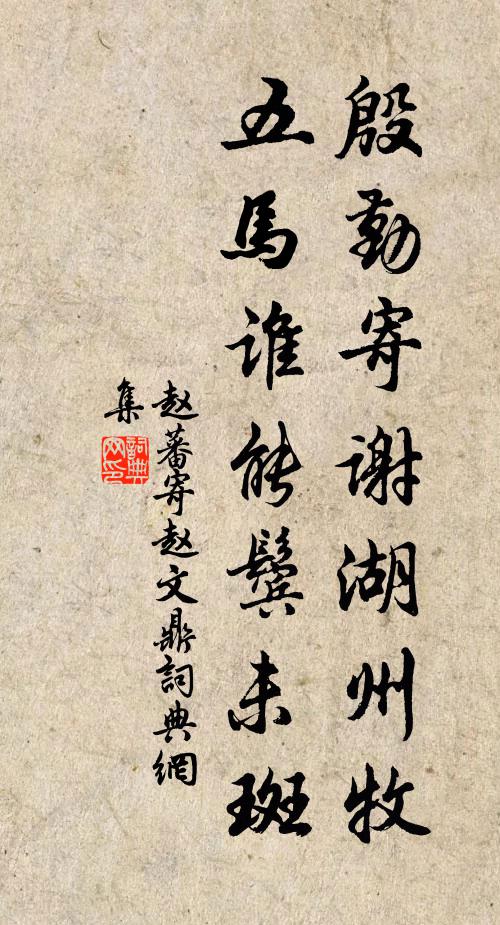 殷勤寄谢湖州牧
五馬谁能鬓未斑
赵蕃寄赵文鼎詞典網
集
詞典网印